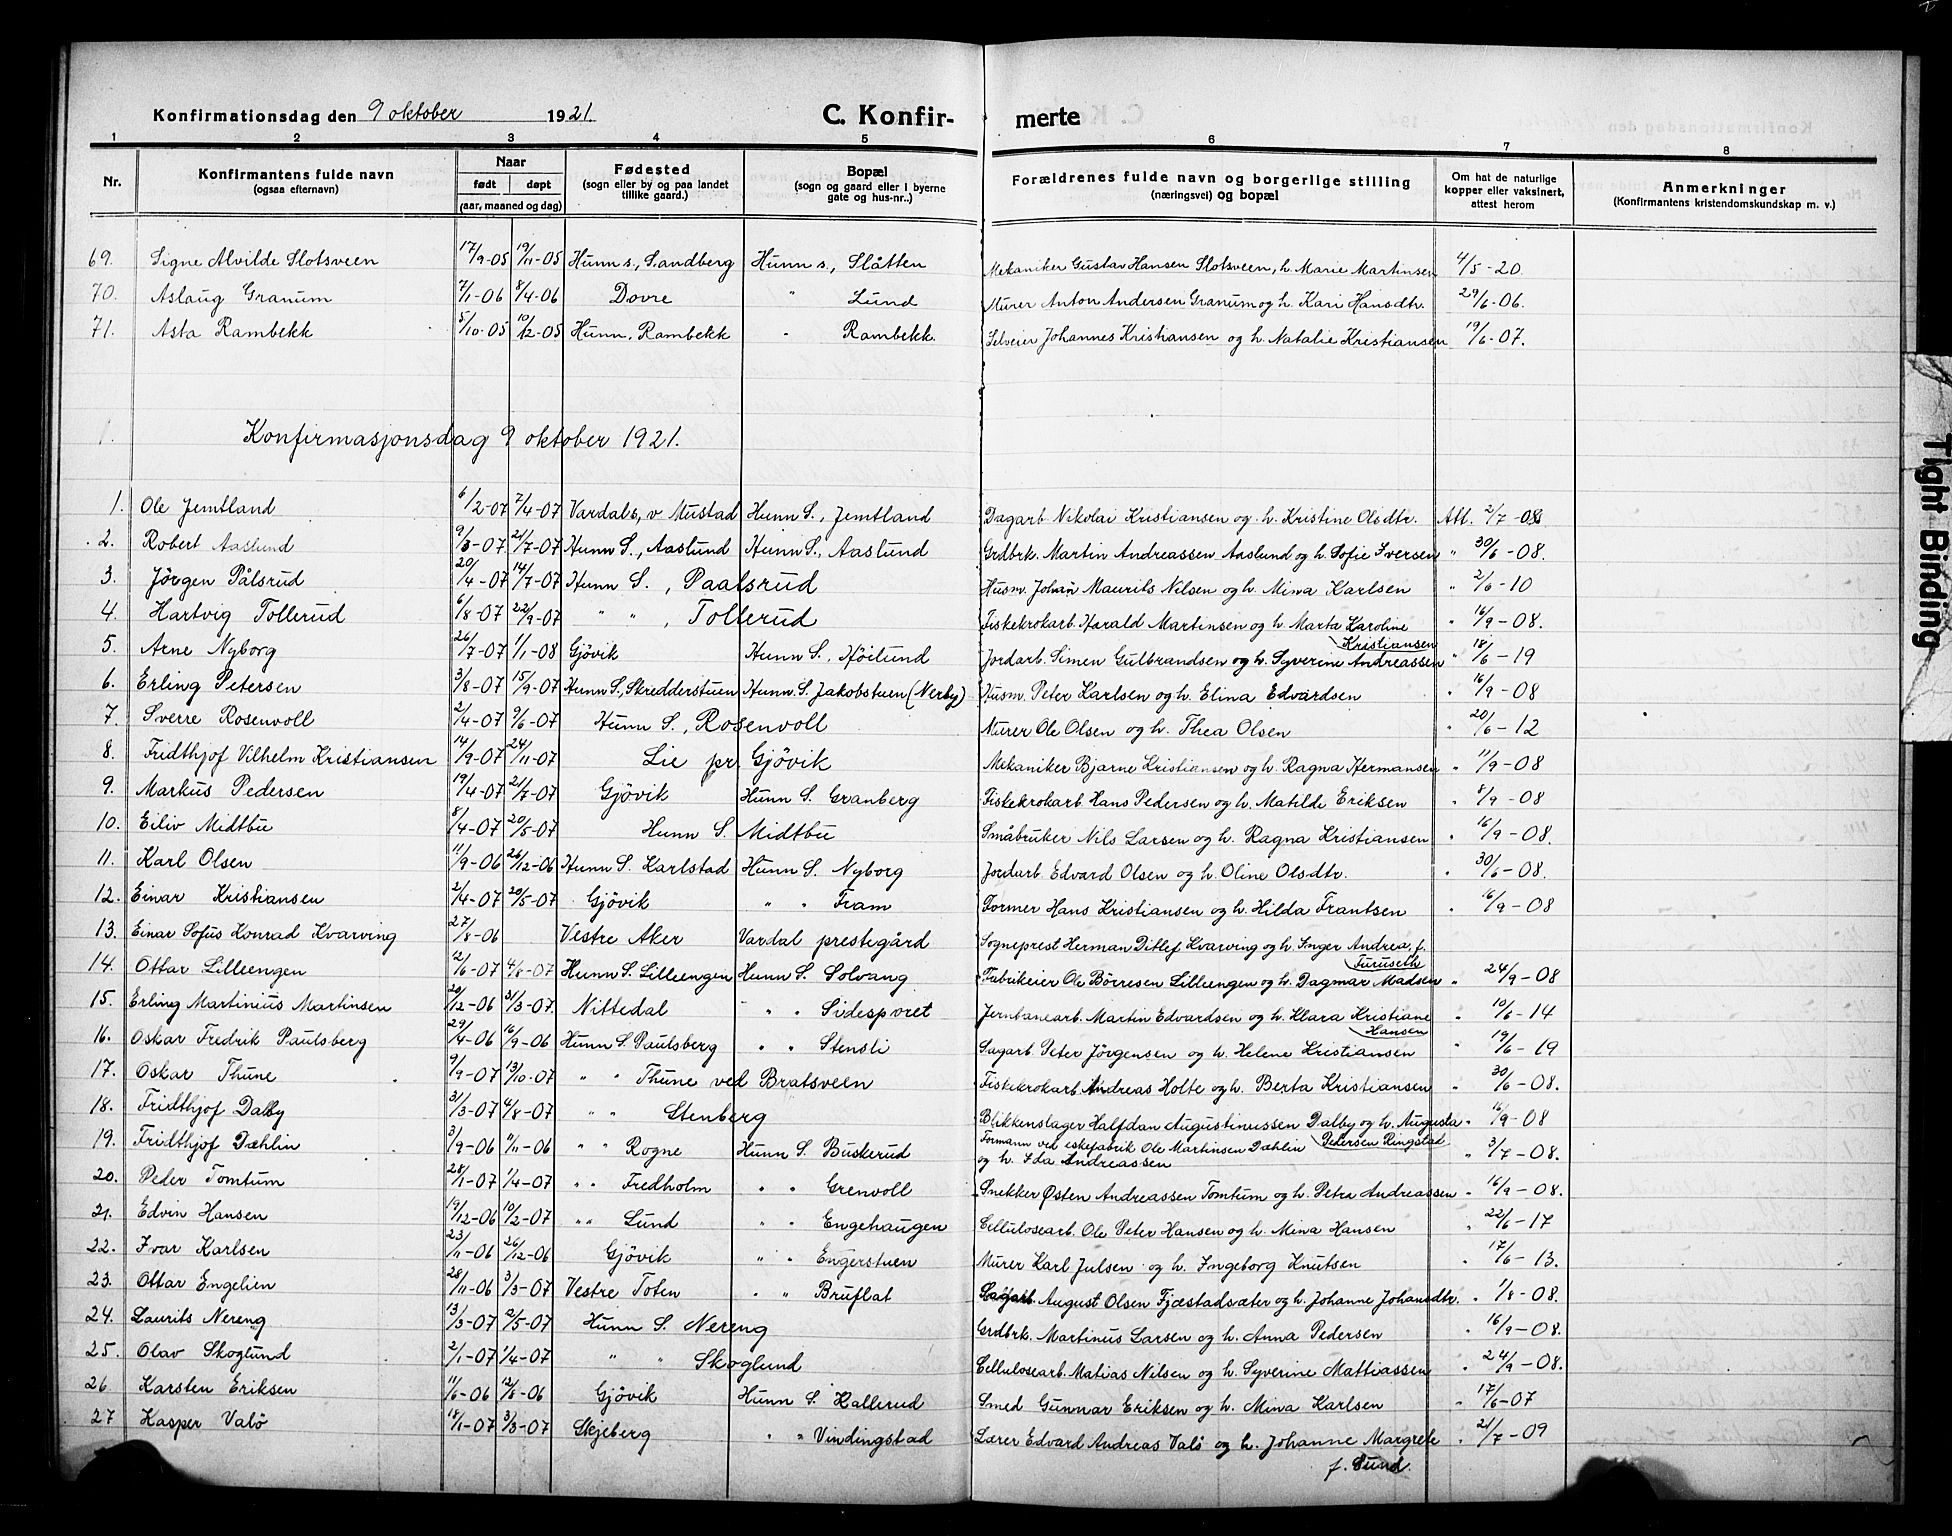 Konfirmationsdag den 9 oktober 1921. C. Konfirmerte
1 2 3 4 5 6 7 8
Nr. Konfirmantens fulde navn (ogsaa efternavn) Naar født døpt (aar, maaned og dag) Fødested (sogn eller by og paa landet tillike gaard.) Bopæl (sogn og gaard eller i byerne gate og hus-nr..) Forældrenes fulde navn og borgerlige stilling (næringsvei) og bopæl Om hat de naturlige kopper eller vaksinert, attest herom Anmerkninger (Konfirmantens kristendomskundskap m. v.)
69. Signe Alvilde Slotsveen 17/9-05 19/11-05 Hunn s., Sandberg Hunn s., Slåtten Mekaniker Gustav Hansen Slotsveen, h. Marie Martinsen 4/5-20.
70. Aslaug Granum 7/1-06 8/4-06 Dovre " Lund Murer Anton Andersen Granum og h. Kari Hansdtr. 29/6-06.
71. Asta Rambekk 5/10-05 10/12-05 Hunn, Rambekk " Rambekk. Selveier Johannes Kristiansen og h. Natalie Kristiansen 19/6-07.
1. Konfirmasjonsdag 9 oktober 1921.
1. Ole Jemtland 6/2-07 7/4-07 Vardals, v Mustad Hunn S., Jemtland Dagarb. Nikolai Kristiansen og h. Kristine Olsdtr. Att. 2/7-08
2. Robert Aaslund 9/3-07 21/7-07 Hunn S., Aaslund Hunn S., Aaslund Grdbrk. Martin Andreassen Aaslund og h. Sofie Iversen " 30/6-08.
3. Jörgen Pålsrud 20/4-07 14/7-07 Hunn S., Paalsrud Husm. Johan Maurits Nilsen og h. Mina Karlsen " 2/6-10
4. Hartvig Tollerud 6/8-07 22/9-07 " ", Tollerud Fiskekrokarb. Harald Martinsen og h. Marta Karoline Kristiansen " 16/9-08.
5. Arne Nyborg 26/7-07 1/1-08 Gjövik Hunn S., Höilund Jordarb. Simen Gulbrandsen og h. Syverine Andreassen " 18/6-19
6. Erling Petersen 3/8-07 15/9-07 Hunn S., Skredderstuen Hunn S. Jakobstuen (Nerby) Husm. Peter Karlsen og h. Elina Edvardsen " 16/9-08
7. Sverre Rosenvoll 2/4-07 9/6-07 Hunn S., Rosenvoll Murer Ole Olsen og h. Thea Olsen " 20/6-12
8. Fridthjof Vilhelm Kristiansen 14/9-07 24/11-07 Lie pr. Gjövik Mekaniker Bjarne Kristiansen og h. Ragna Hermansen " 11/9-08
9. Markus Pedersen 19/4-07 21/7-07 Gjövik Hunn S. Granberg Fiskekrokarb. Hans Pedersen og h. Matilde Eriksen " 8/9-08
10. Eiliv Midtbu 8/4-07 20/5-07 Hunn S. Midtbu Småbruker Nils Larsen og h. Ragna Kristiansen " 16/9-08.
11. Karl Olsen 11/9-06 26/12-06 Hunn S. Karlstad Hunn S. Nyborg Jordarb. Edvard Olsen og h. Oline Olsdtr. " 30/6-08.
12. Einar Kristiansen 2/4-07 20/5-07 Gjövik " " Fram Former Hans Kristiansen og h. Hilda Frantsen " 16/9-08
13. Einar Sofus Konrad Kvarving 27/8-06 Vestre Aker Vardal prestegård Sogneprest Herman Ditlef Kvarving og h. Inger Andrea, f. Furuseth
14. Ottar Lilleengen 2/6-07 4/8-07 Hunn S. Lilleengen Hunn S. Solvang Fabrikeier Ole Börresen Lilleengen og h. Dagmar Madsen " 24/9-08
15. Erling Martinius Martinsen 20/12-06 31/3-07. Nittedal " " Sidesporet Jernbanearb. Martin Edvardsen og h. Klara Kristiane Hansen " 10/6-14
16. Oskar Fredrik Paulsberg 29/4-06 16/9-06 Hunn S. Paulsberg " " Stensli Sagarb. Peter Jörgensen og h. Helene Kristiansen " 19/6-19
17. Oskar Thune 9/9-07 13/10-07 " " Thune ved Bratsveen Fiskekrokarb. Andreas Holte og h. Berta Kristiansen " 30/6-08.
18. Fridthjof Dalby 31/3-07 4/8-07 " " Stenberg Blikkenslager Halfdan Augustinussen Dalby og h. Augusta Pedersen Ringstad " 16/9-08
19. Fridthjof Dæhlin 3/9-06 9/11-06 " " Rogne Hunn S. Buskerud Formann ved eskefabrik Ole Martinsen Dæhlin og h. Ida Andreassen " 3/7-08.
20. Peder Tomtum 28/1-07 1/4-07 " " Fredholm " " Grenvoll Snekker Østen Andreassen Tomtum og h. Petra Andreassen " 16/9-08.
21. Edvin Hansen 19/12-06 10/2-07 " " Lund " " Engehaugen Cellulosearb. Ole Peter Hansen og h. Mina Hansen " 22/6-17
22. Ivar Karlsen 23/11-06 26/12-06 Gjövik " " Engerstuen Murer Karl Julsen og h. Ingeborg Knutsen " 17/6-13.
23. Ottar Engelien 28/11-06 3/3-07 Vestre Toten " " Bruflat Sagarb. August Olsen Fjæstadsæter og h. Johanne Johansdtr. " 1/8-08.
24. Laurits Nereng 13/3-07 2/5-07 Hunn S. Nereng Grdbrk. Martinus Larsen og h. Anna Pedersen " 16/9-08.
25. Olav Skoglund 2/1-07 1/4-07 " " Skoglund Cellulosearb. Matias Nilsen og h. Syverine Mattiassen " 24/9-08.
26. Karsten Eriksen 11/6-06 12/8-06 Gjövik Hunn S. Kallerud Smed Gunnar Eriksen og h. Mina Karlsen " 17/6-07
27 Kasper Valö 18/1-07 3/3-07 Skjeberg " " Vindingstad Lærer Edvard Andreas Valö og h. Johanne Margrete f. Sund. " 21/7-09
Tight Binding